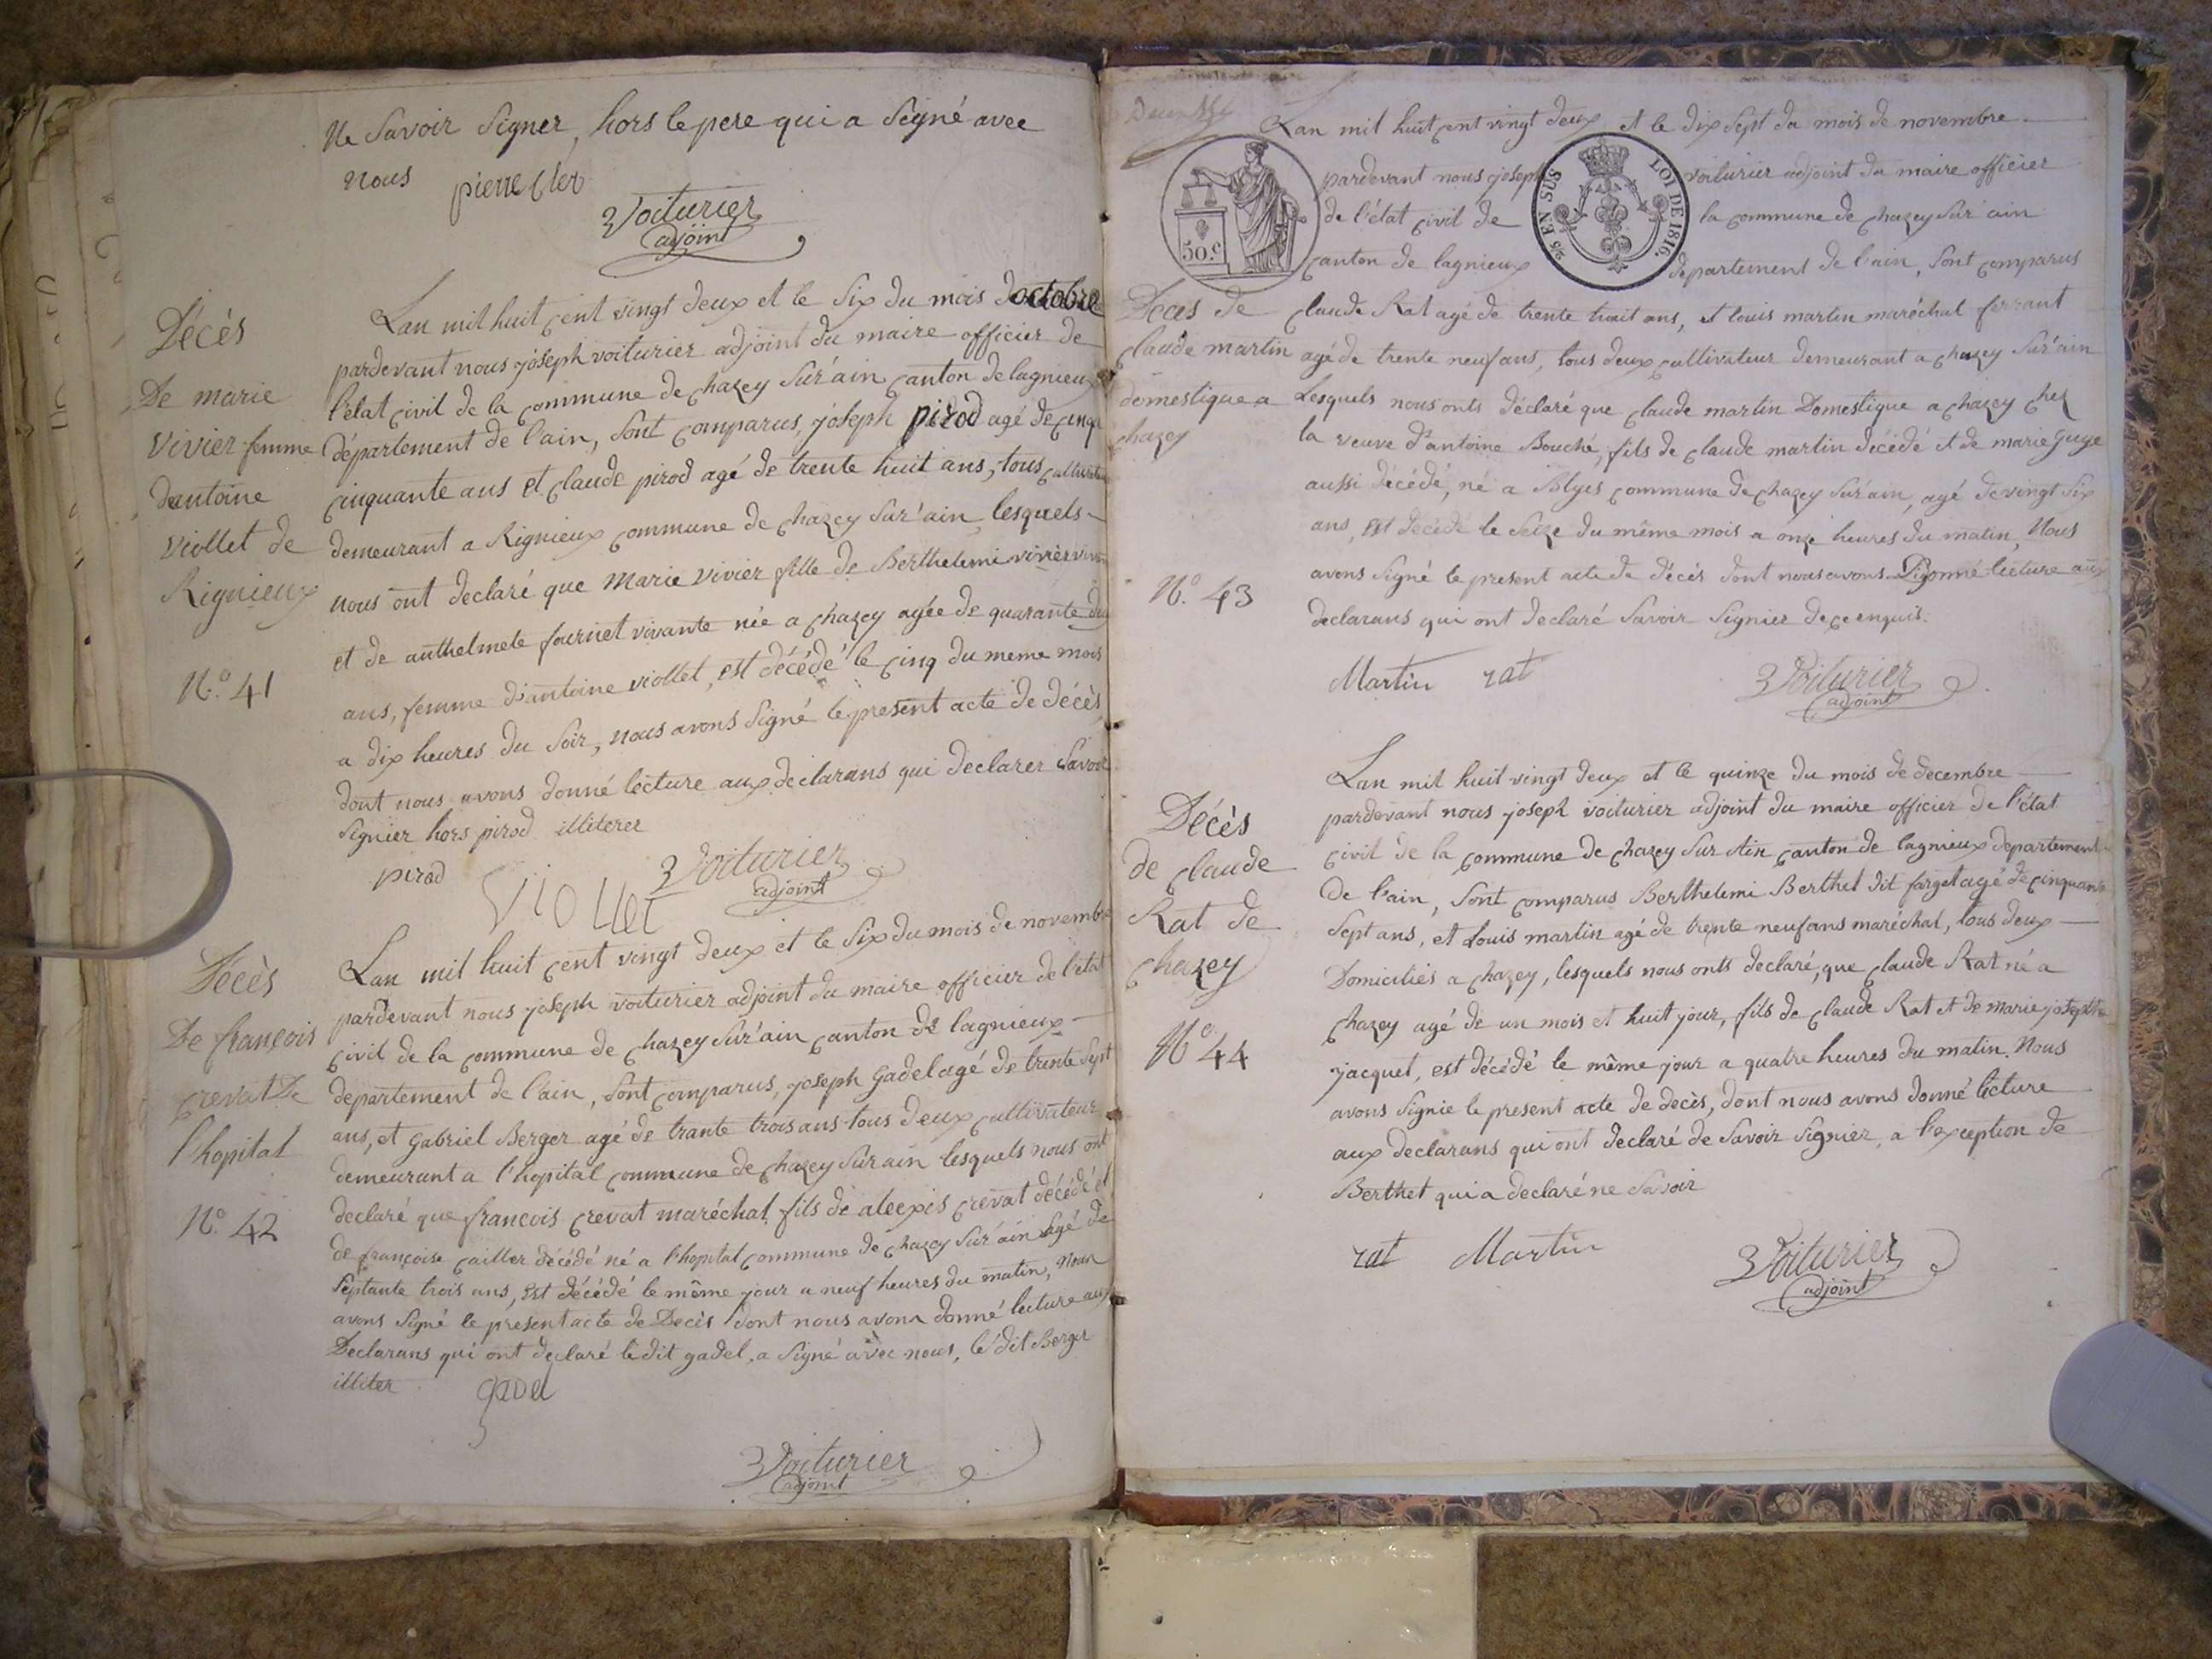 Ne Savoir Signer, hors le pere qui a Signé avec
nous pierre Cler
Voiturier
adjoint
Décès
De marie
vivier femme
dantoine
viollet de
Rignieux
N.o 41
Lan mil huit cent vingt deux et le Six du mois doctobre
pardevant nous joseph voiturier adjoint du maire officier de
l'état civil de la commune de chazey Sur'ain canton de lagnieux
département de l'ain, Sont comparus, joseph pirod agé de cinq
cinquante ans et claude pirod agé de trente huit ans, tous
demeurant a Rignieux commune de chazey Sur'ain, lesquels
nous ont declaré que Marie vivier fille de Berthelemi vivier
et de anthelmete fournet vivante née a chazey agée de quarante
ans, femme d'antoine viollet, est décédé le cinq du meme mois
a dix heures du Soir, nous avons Signé le present acte de décès,
dont nous avons donné lecture aux declarans qui declarer Savoir
Signier hors pirod illiterer
pirod Viollet Voiturier
adjoint
Décès
De françois
crevat De
l'hopital
N.o 42
Lan mil huit cent vingt deux et le Six du mois de novembre
pardevant nous joseph voiturier adjoint du maire officier de l'état
civil de la commune de chazey Sur'ain canton de lagnieux
departement de l'ain, Sont comparus, joseph gadel agé de trente Sept
ans, et gabriel Berger agé de trante trois ans tous deux cultivateur
demeurant a l'hopital commune de chazey Sur ain lesquels nous ont
declaré que francois crevat maréchal, fils de aleexis crevat décédé et
de françoise cailler décédé né a l'hopital commune de chazey Sur'ain agé de
Septante trois ans, est décédé le même jour a neuf heures du matin, Nous
avons Signé le present acte de Decès dont nous avons donné lecture aux
Declarans qui ont declaré ledit gadel, a Signé avec nous, le dit Berger
illiter gadel
Voiturier
adjoint
Lan mil huit cent vingt deux et le dix Sept du mois de novembre
pardevant nous joseph voiturier adjoint du maire officier
de l'état civil de la commune de chazey Sur'ain
canton de lagnieux departement de l'ain, Sont comparus
50.c
25 EN SUS LOI DE 1816.
Décès de
claude martin
domestique a
chazey
N.o 43
claude Rat agé de trente huit ans, et louis martin maréchal ferrant
agé de trente neuf ans, tous deux cultivateur demeurant a chazey Sur'ain
Lesquels nous onts déclaré que claude martin Domestique a chazey chez
la veuve d'antoine Bouché, fils de claude martin décédé et de marie guye
aussi décédé, né a Blyes commune de chazey Sur'ain, agé de vingt Six
ans, est décédé le Seize du même mois a onze heures du matin, Nous
avons Signé le present acte de décès dont nous avons donné lecture aux
declarans qui ont declaré Savoir Signier de ce enquis.
Martin rat Voiturier
adjoint
Décès
de claude
Rat de
chazey
N.o 44
Lan mil huit vingt deux et le quinze du mois de decembre
pardevant nous joseph voiturier adjoint du maire officier de l'état
civil de la commune de chazey Sur Ain canton de lagnieux departement
de l'ain, Sont comparus Berthelemi Berthet dit farget agé de cinquante
Sept ans, et Louis martin agé de trente neuf ans maréchal, tous deux
Domiciliés a chazey, lesquels nous onts declaré, que claude Rat né a
chazey agé de un mois et huit jour, fils de claude Rat et de marie josephte
jacquet, est décédé le même jour a quatre heures du matin. Nous
avons Signie le present acte de decès, dont nous avons donné lecture
aux declarans qui ont declaré de Savoir Signier, a l'exception de
Berthet qui a declaré ne Savoir
rat Martin Voiturier
adjoint